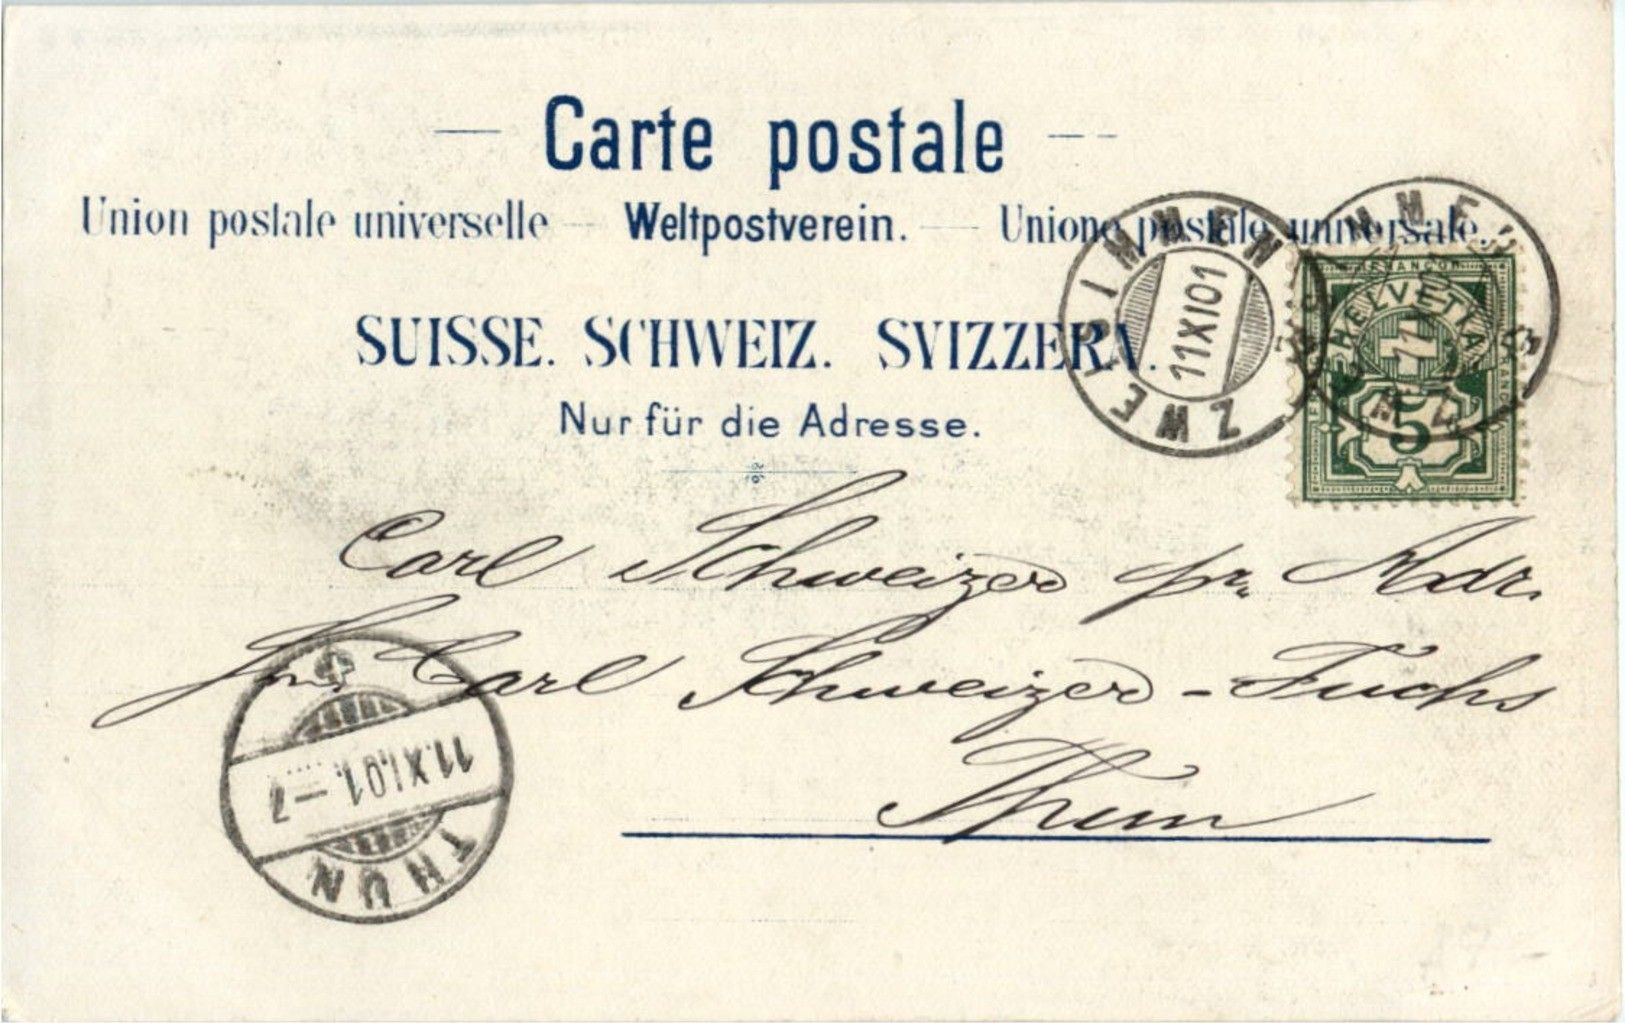 Carte postale
Union postale universelle — Weltpostverein. — Unione postale universale.
SUISSE. SCHWEIZ. SVIZZERA.
Nur für die Adresse.
ZWEISIMMEN
11 XI 01
FRANCO
HELVETIA
5
Carl Schweizer pr. Adr.
Carl Schweizer-Fuchs
Thun
THUN
11.XI.01.–7